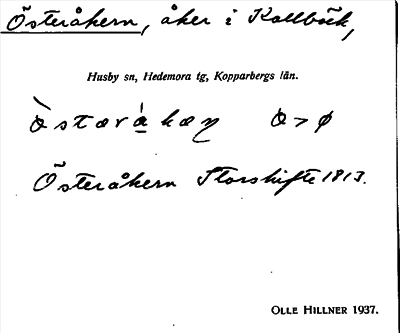 Österåkern, åker i Kallbäck,
Husby sn, Hedemora tg, Kopparbergs län.
Österåkern Storskifte 1813.
OLLE HILLNER 1937.